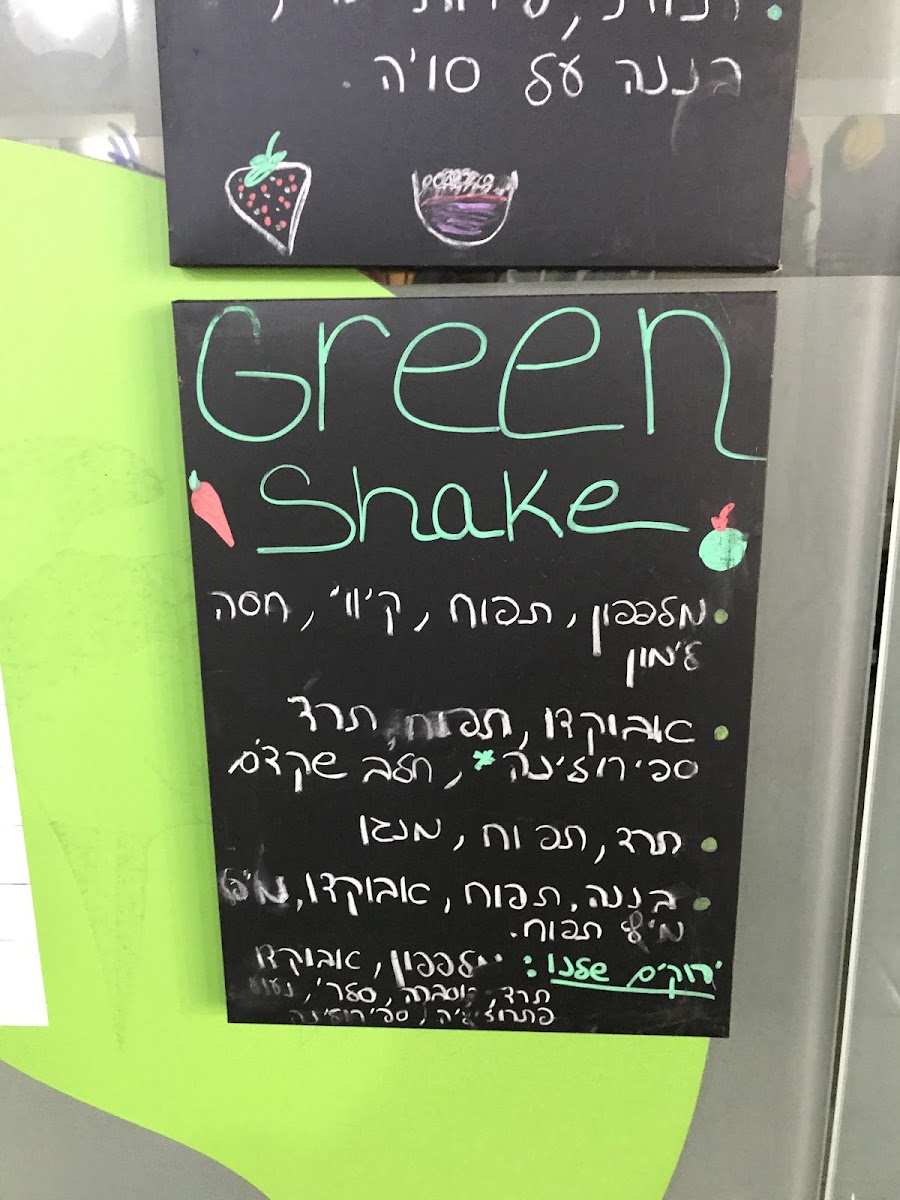 בננה על סו'ה.
Green
Shake
מלפפון, תפוח, קיווי, חסה
לימון
אבוקדו, תפוח, תרד
ספירולינה*, חלב שקדים
תרד, תפוח, מנגו
בננה, תפוח, אבוקדו,
מיץ תפוח.
ירוקים שלנו: מלפפון, אבוקדו
תרד, כוסברה, סלרי, נענע
פתרוזיליה, ספירולינה